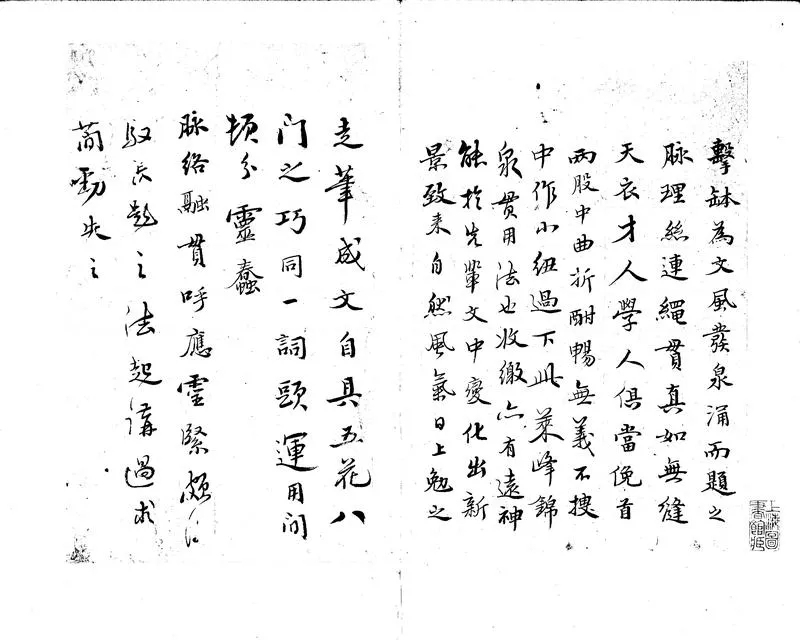 擊缽為文風發泉涌而題之
脉理絲連繩貫真如無縫
天衣才人學人俱當俛首
兩股中曲折酣暢無義不搜
中作小紐過下此萊峰錦
泉貫用法也收繳亦有遠神
能於先輩文中變化出新
景致來自然風氣日上勉之
走筆成文自具五花八
门之巧同一詞頭運用间
頓分靈蠢
脉络融貫呼應靈緊頗得
馭長題之法起講過求
簡勁失之
上海圖書館藏